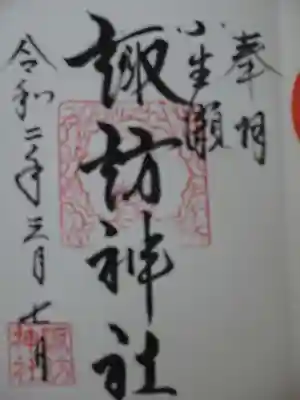 奉拝
小生瀬
諏訪神社
令和二年三月七日